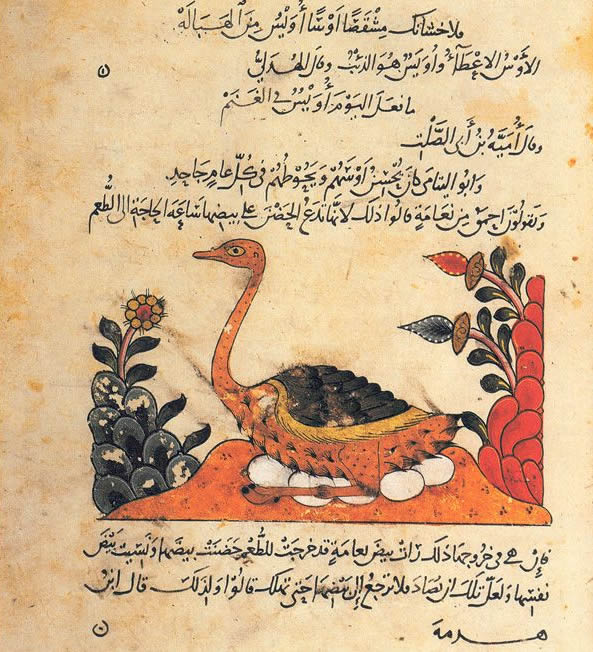 فلاحشانك مشقصا أوسا أويس من الهبالة
الأوس الإعطاء وأويس هو الذئب وقال الهذلي
ما فعل اليوم أويس في الغنم
وقال أمية بن أبي الصلت
وابو اليتامى كان يحسن أوسهم ويحوطهم في كل عام جاحد
ويقولون احمق من نعامة قالوا ذلك لانها تدع الحضن على بيضها ساعة الحاجة الى الطعم
فإن هي في خروجها ذلك رات بيض نعامة قد خرجت للطعم حضنت بيضها ونسيت بيض
نفسها ولعل تلك ان تصاد فلا ترجع إلى بيضها حتى تهلك قالوا ولذلك قال ابن
هرمة